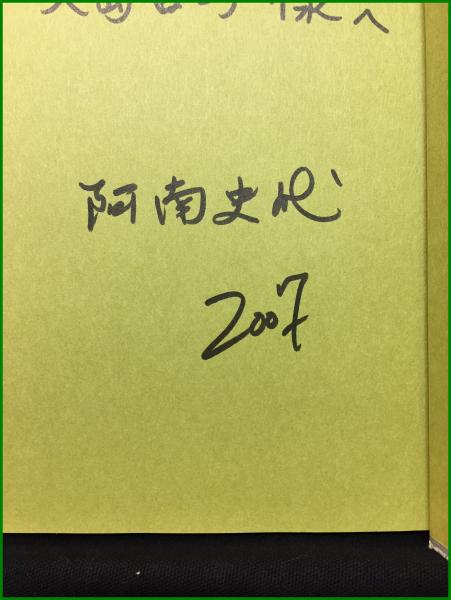 様へ
阿南史代
2007